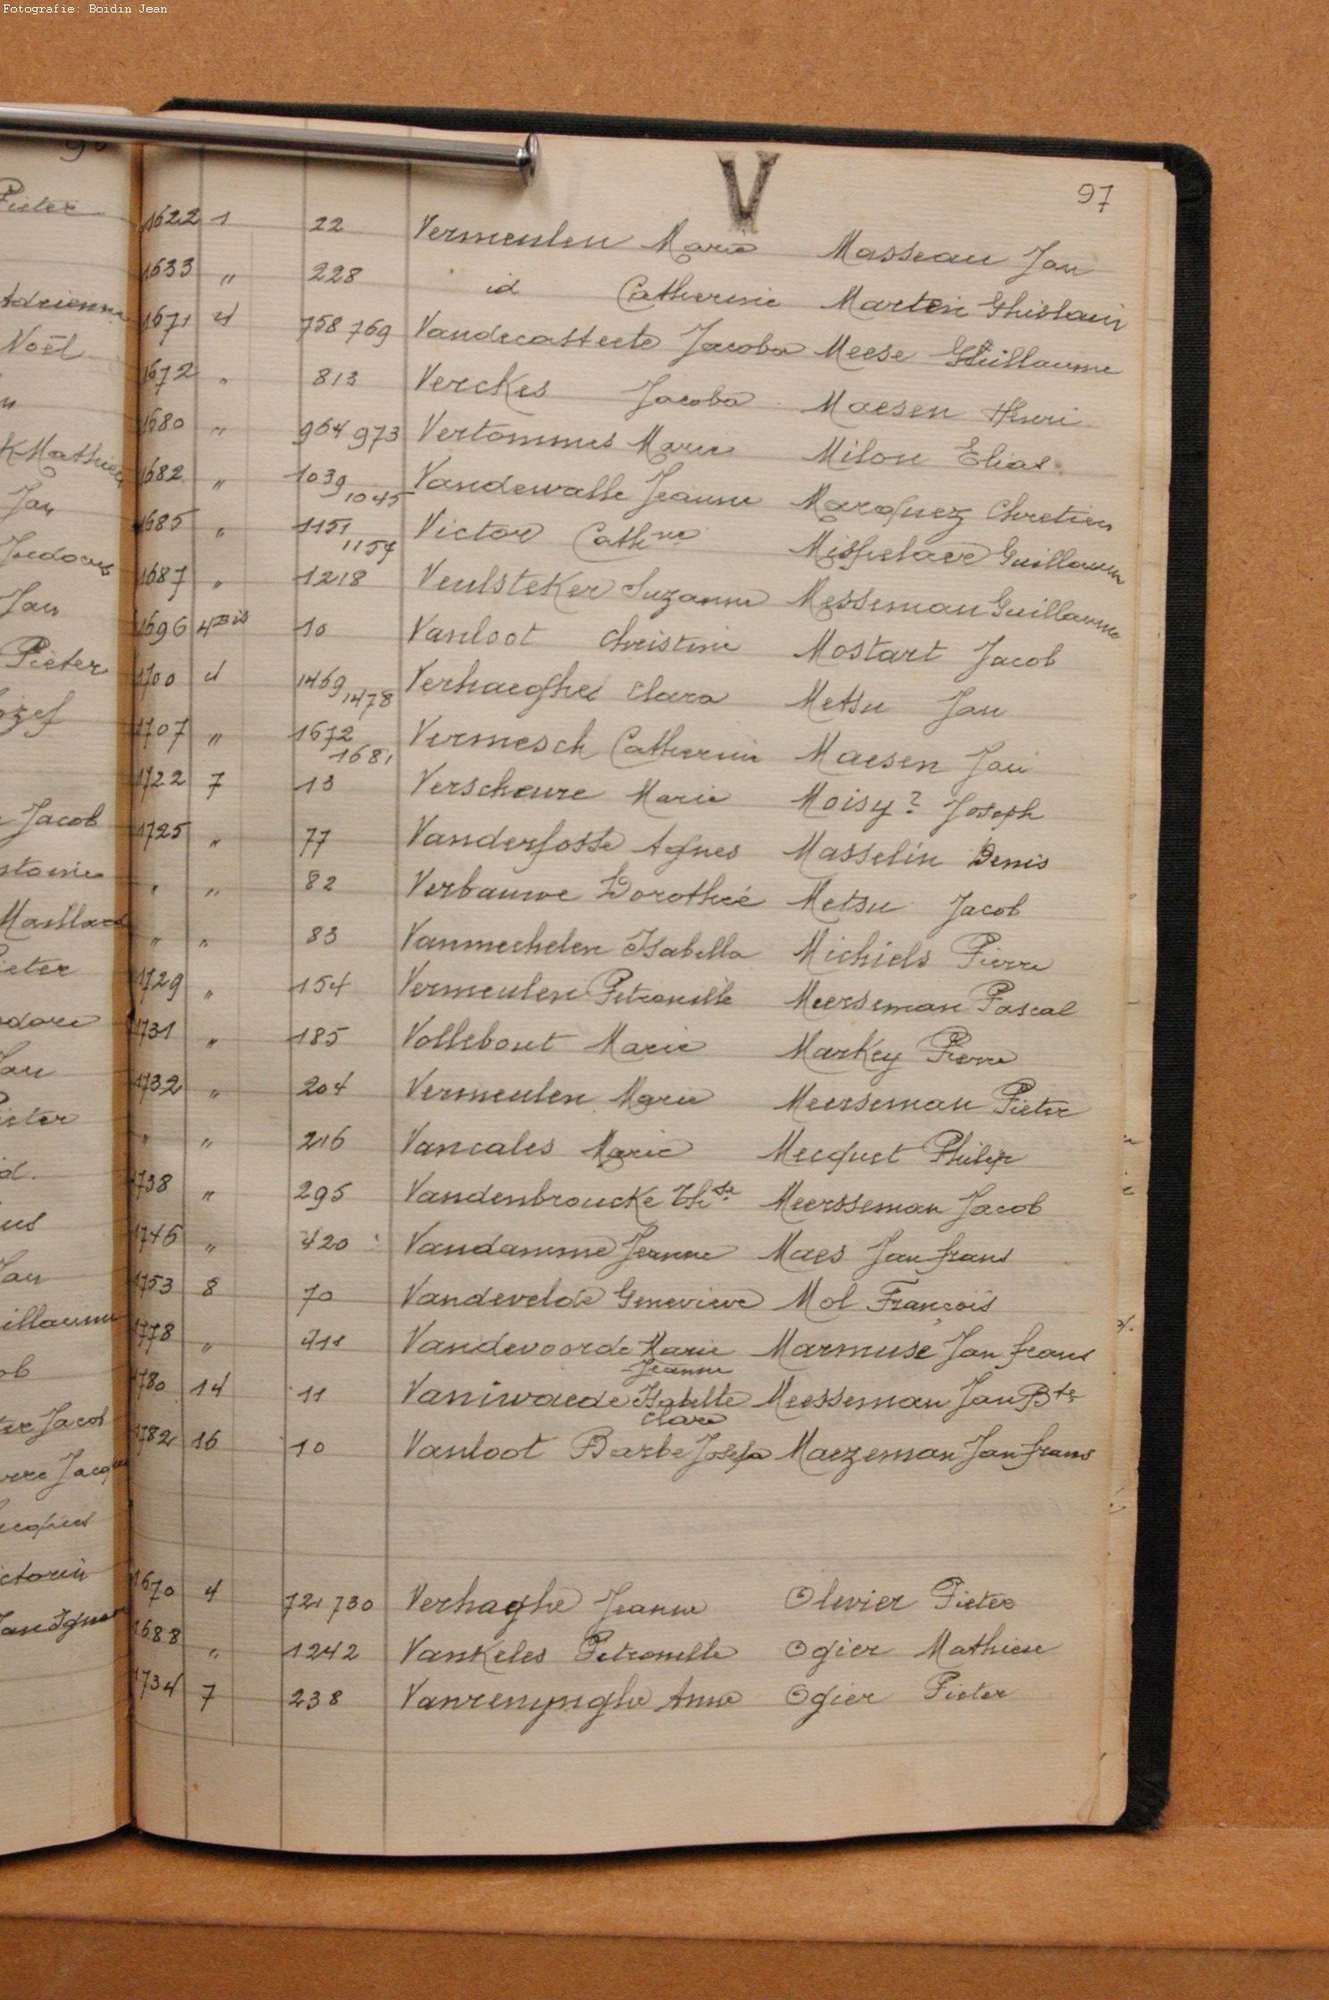 Fotografie: Boidin Jean
V
97
1622 1 22 Vermeulen Marie Masseau Jan
1633 " 228 id Catherine Marten Ghislain
1671 4 758 769 Vandecasteele Jacoba Meese Guillaume
1672 " 813 Verckes Jacoba Maesen Henri
1680 " 964 973 Vertommes Marie Milon Elias
1682 " 1039 1045 Vandewalle Jeanne Marquez Chretien
1685 " 1151 1154 Victor Cathne Mispelaer Guillaume
1687 " 1218 Veulsteker Suzanne Messeman Guillaume
1696 4Bis 10 Vanloot Christine Mostart Jacob
1700 4 1469 1478 Verhaeghe Clara Metsu Jan
1707 " 1672 1681 Vermesch Catherine Maesen Jan
1722 7 13 Verscheure Marie Moisy? Joseph
1725 " 77 Vanderfosse Agnes Masselin Denis
" " 82 Verbauwe Dorothée Metsu Jacob
" " 83 Vanmechelen Isabella Michiels Pierre
1729 " 154 Vermeulen Petronille Meerseman Pascal
1731 " 185 Vollebout Marie Markey Pierre
1732 " 204 Vermeulen Marie Meerseman Pieter
" " 216 Vancales Marie Mecquet Philip
1738 " 295 Vandenbroucke Thse Meersseman Jacob
1746 " 420 Vandamme Jeanne Maes Jan frans
1753 8 70 Vandevelde Genevieve Mol François
1778 " 411 Vandevoorde Marie Jeanne Marmuse Jan frans
1780 14 11 Vaniwaede Isabelle Clare Meesseman Jan Bte
1782 16 10 Vanloot Barbe Josefa Maezeman Jan frans
1670 4 721 730 Verhaghe Jeanne Olivier Pieter
1688 " 1242 Vankeles Petronille Ogier Mathieu
1734 7 238 Vanrenynghe Anne Ogier Pieter